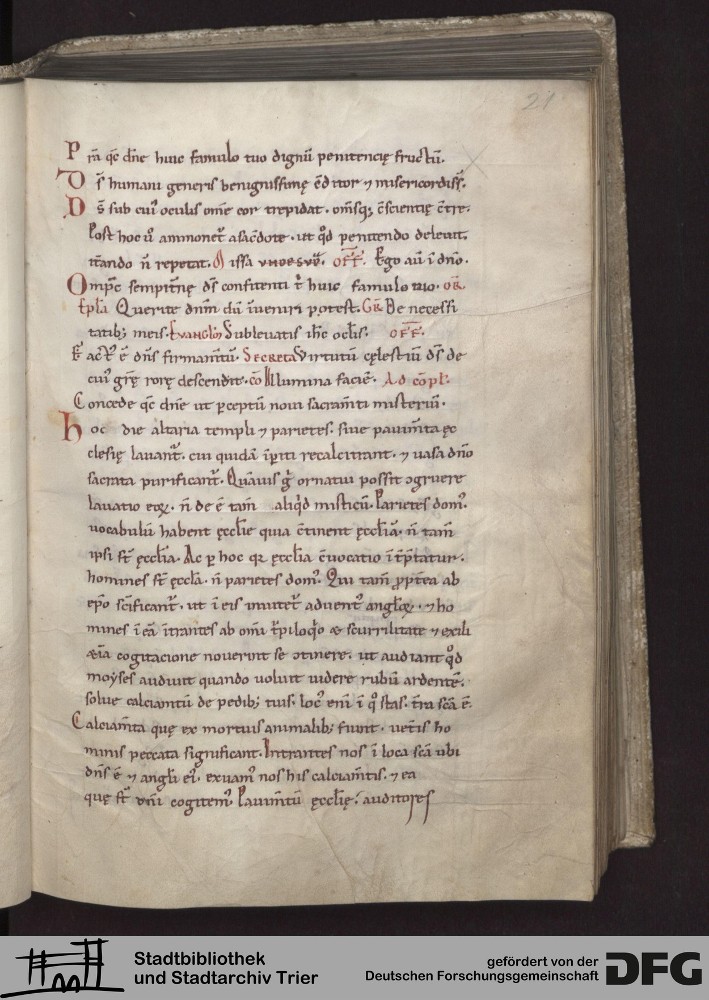 21
Pra qc dne huic famulo tuo dignũ penitencię fructũ.
Ds humani generis benignissimę cditor ⁊ misericordiss.
Ds sub cui' oculis om̃e cor trepidat. om̃sq; cscientię ctre.
Post hoc ũ ammonet' a sacdote. ut qd penitendo deleuit.
itando ñ repetat. Missa off. Ego aũ ĩ dño.
Omps sempitne ds confitenti t huic famulo tuo. or
Epla Querite dnm dũ inueniri potest. Gr De necessi
tatib; meis. Evangłm Subleuatis ihc oclis. off.
f act' ẽ dñs firmamtũ. Secreta Virtutũ cęlestiũ ds de
cui' grę rorę descendit. cõ Illumina faciẽ. Ad cõpl.
Concede qc dne ut pceptũ noui sacramti misteriũ.
Hoc die altaria templi ⁊ parietes. siue pauimta ęc
clesię lauant'. cui quidã ipiti recalcitrant. ⁊ uasa dño
sacrata purificant'. Quãuis g̃ ornatui possit ɔgruere
lauatio eoꝝ. ñ de ẽ tam̃ aliqd misticũ. Parietes dom'
uocabulũ habent ęcclie quia ctinent ęccliã. ñ tam̃
ipsi st ęcclia. Ac p hoc qr ęcclia cuocatio ĩtptatur.
homines st ęccla. ñ parietes dom'. Qui tam̃ pptea ab
epo scificant'. ut ĩ eis inuitet' aduent' angloꝝ. ⁊ ho
mines ĩ eã ĩtrantes ab omi tpiloqo & scurrilitate ⁊ exili
cogitacione nouerint se ɔtinere. ut audiant qd
moyses audiuit quando uoluit uidere rubũ ardentẽ.
solue calciamtũ de pedib; tuis. loc' eni ĩ q stas. tra scã ẽ.
Calciamta quę ex mortuis animalib; fiunt. uetis ho
minis peccata significant. Intrantes nos ĩ loca scã ubi
dñs ẽ ⁊ angli ei'. exuam' nos his calciamtis. ⁊ ea
quę st dñi cogitem'. Pauimtũ ęcclię. auditores
Stadtbibliothek
und Stadtarchiv Trier
gefördert von der
Deutschen Forschungsgemeinschaft
DFG